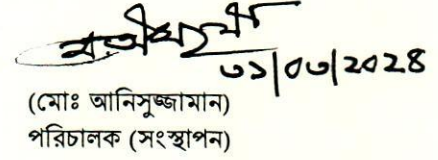 ৩১/০৩/২০২৪
(মোঃ আনিসুজ্জামান)
পরিচালক (সংস্থাপন)